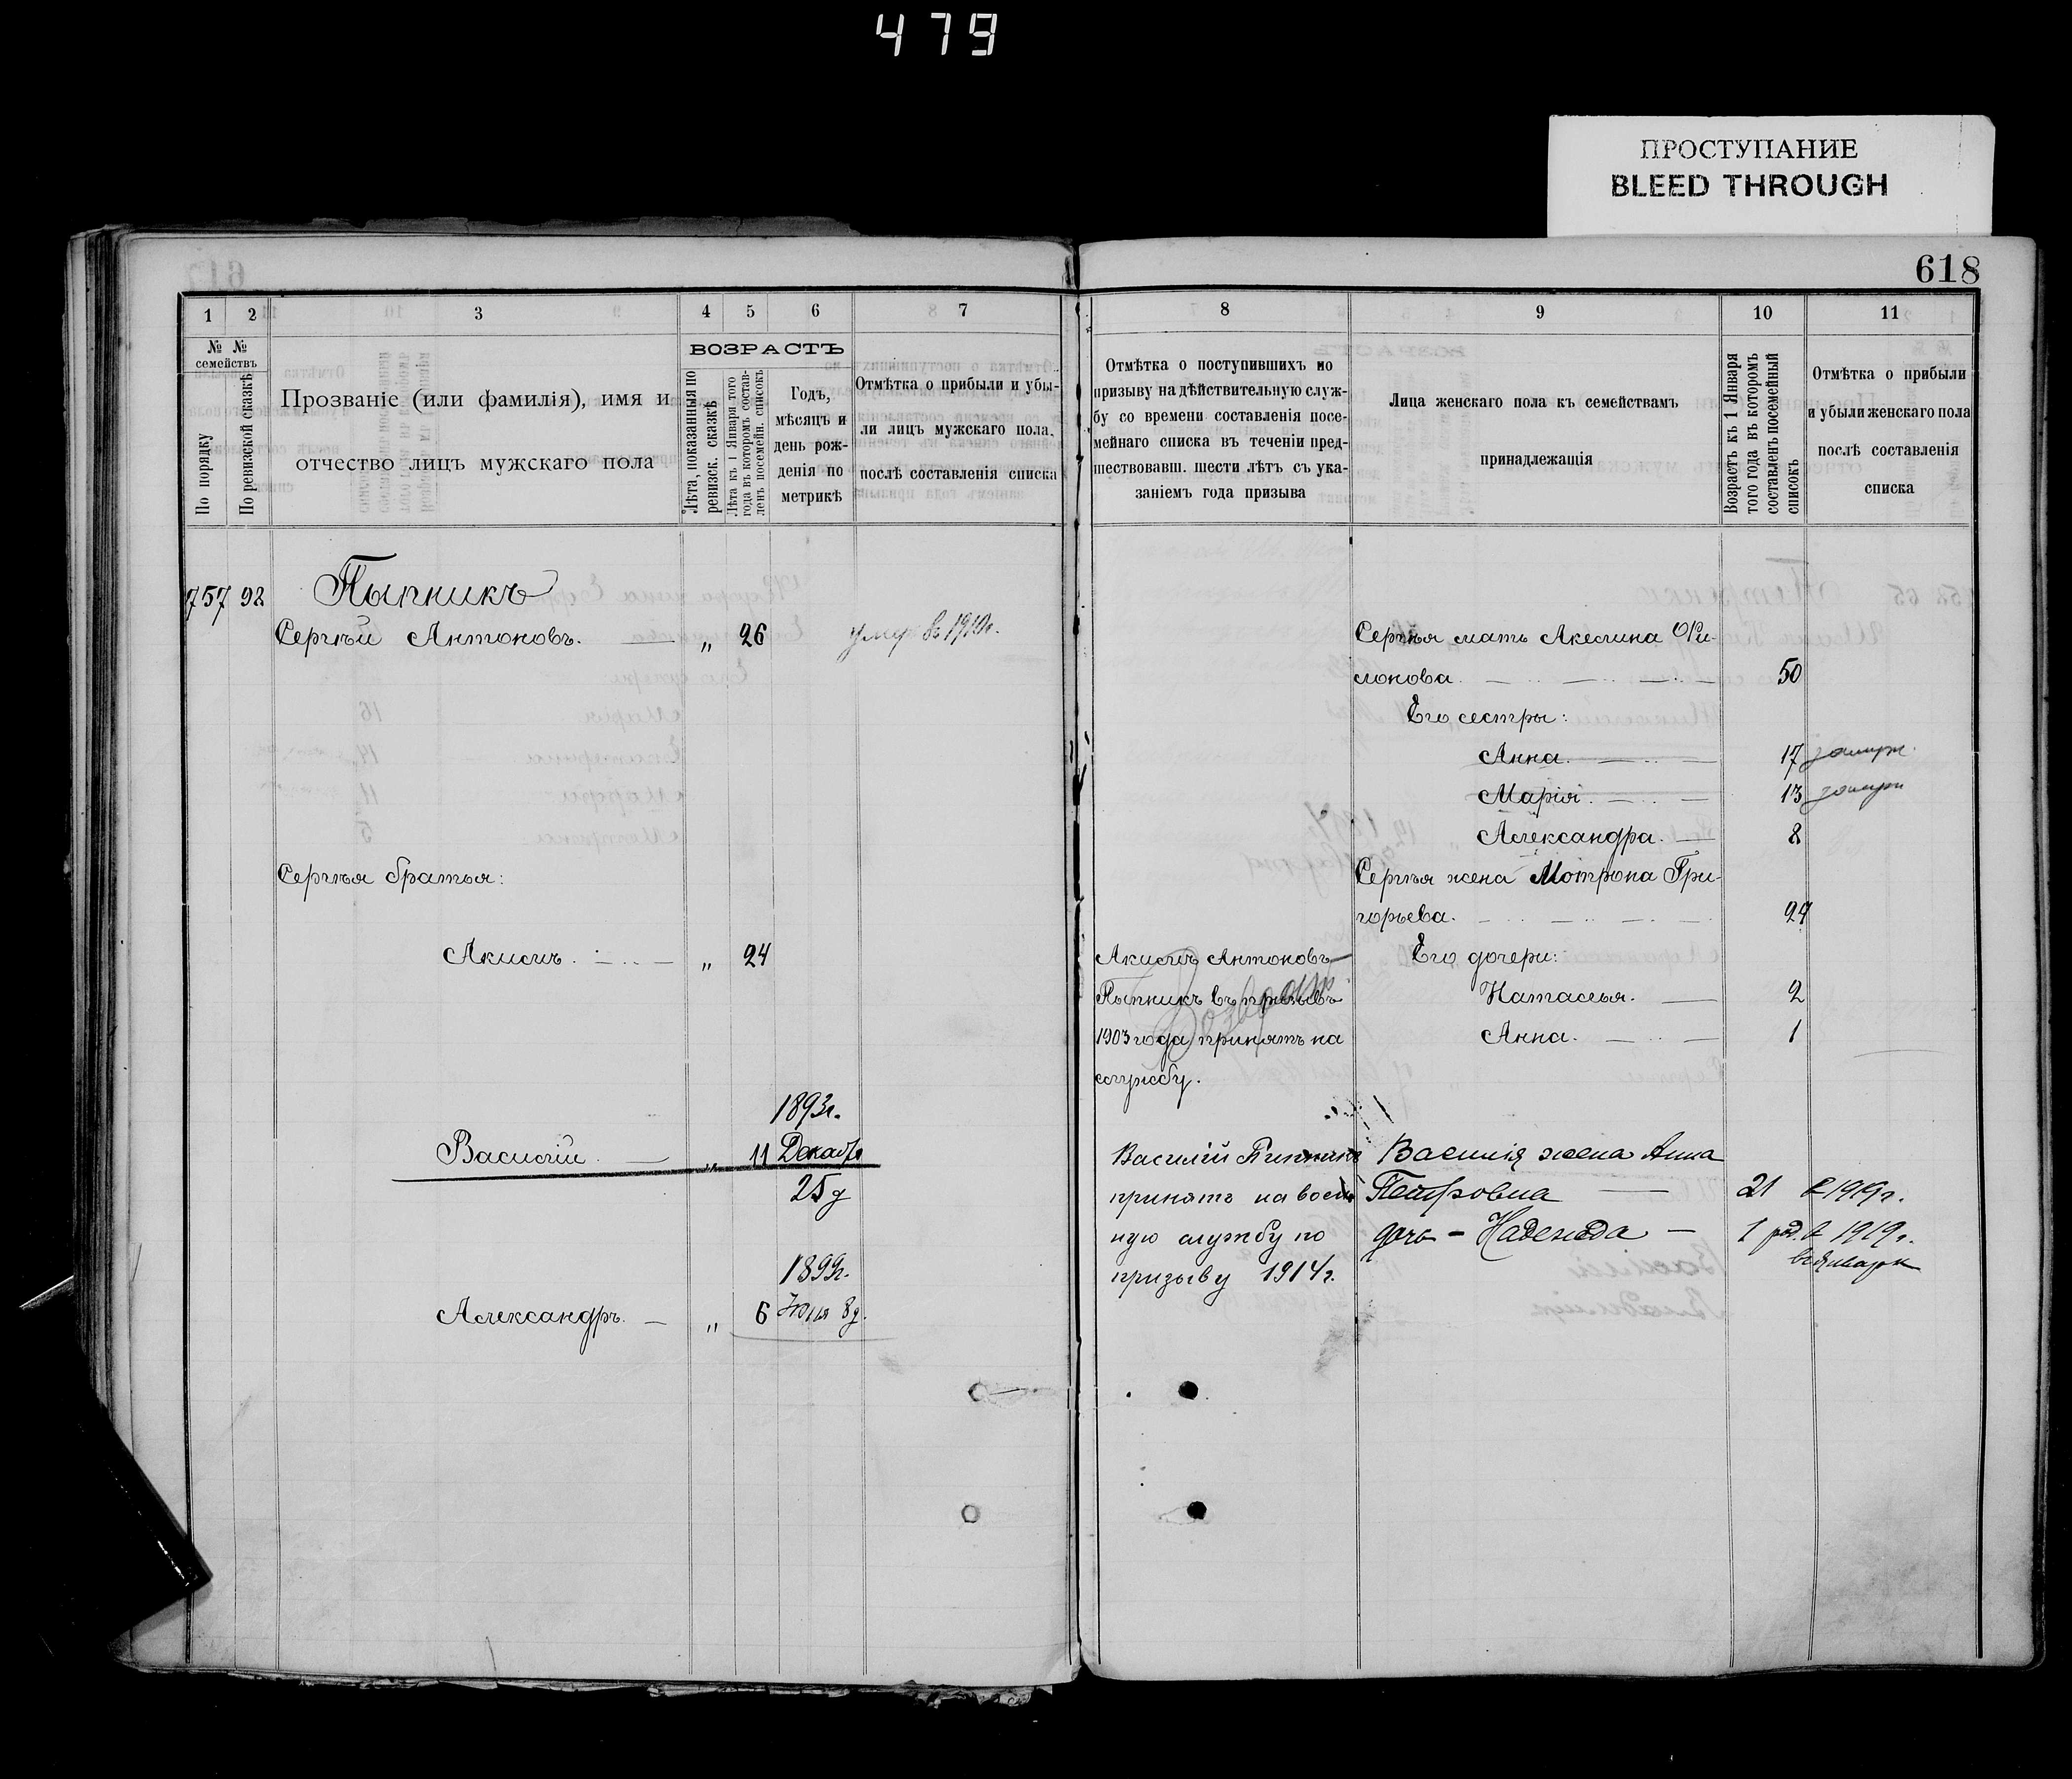 479
ПРОСТУПАНИЕ
BLEED THROUGH
618
1 2 3 4 5 6 7
№ № семействъ
По порядку
По ревизской сказкѣ
Прозваніе (или фамилія), имя и
отчество лицъ мужскаго пола
ВОЗРАСТЪ
Лѣта, показанныя по
ревизск. сказкѣ
Лѣта къ 1 Января того
года въ которомъ состав-
ленъ посемейн. списокъ
Годъ,
мѣсяцъ и
день рож-
денія по
метрикѣ
Отмѣтка о прибыли и убы-
ли лицъ мужскаго пола.
послѣ составленія списка
8 9 10 11
Отмѣтка о поступившихъ по
призыву на дѣйствительную служ-
бу со времени составленія посе-
мейнаго списка въ теченіи пред-
шествовавш. шести лѣтъ съ ука-
заніемъ года призыва
Лица женскаго пола къ семействамъ
принадлежащія
Возрастъ къ 1 Января
того года въ которомъ
составленъ посемейный
списокъ
Отмѣтка о прибыли
и убыли женскаго пола
послѣ составленія
списка
757 92 Пыпникъ
Сергѣй Антоновъ. — „ 26 умер в 1919г.
Сергѣя братья:
Акимъ. — „ 24
1893г.
Василій — „ 11 Декабр
25 д
1899г.
Александръ. — „ 6 Іюня 8 д.
Акимъ Антоновъ
Пыпникъ въ призывъ
1903 года принятъ на
службу.
Возврат
Василій Пипник
принятъ на воен
ную службу по
призыву 1914г.
Сергѣя мать Акелина Фи-
лонова. — 50
Его сестры:
Анна. — 17 замуж.
Марія. — 13 замуж
Александра. — 8
Сергѣя жена Мотрона Гри-
горьева. — 24
Его дочери:
Наталья. — 2
Анна. — 1
Василія жена Анна
Петровна — 21 в 1919г.
дочь - Надежда — 1 род. в 1919г.
въ январѣ